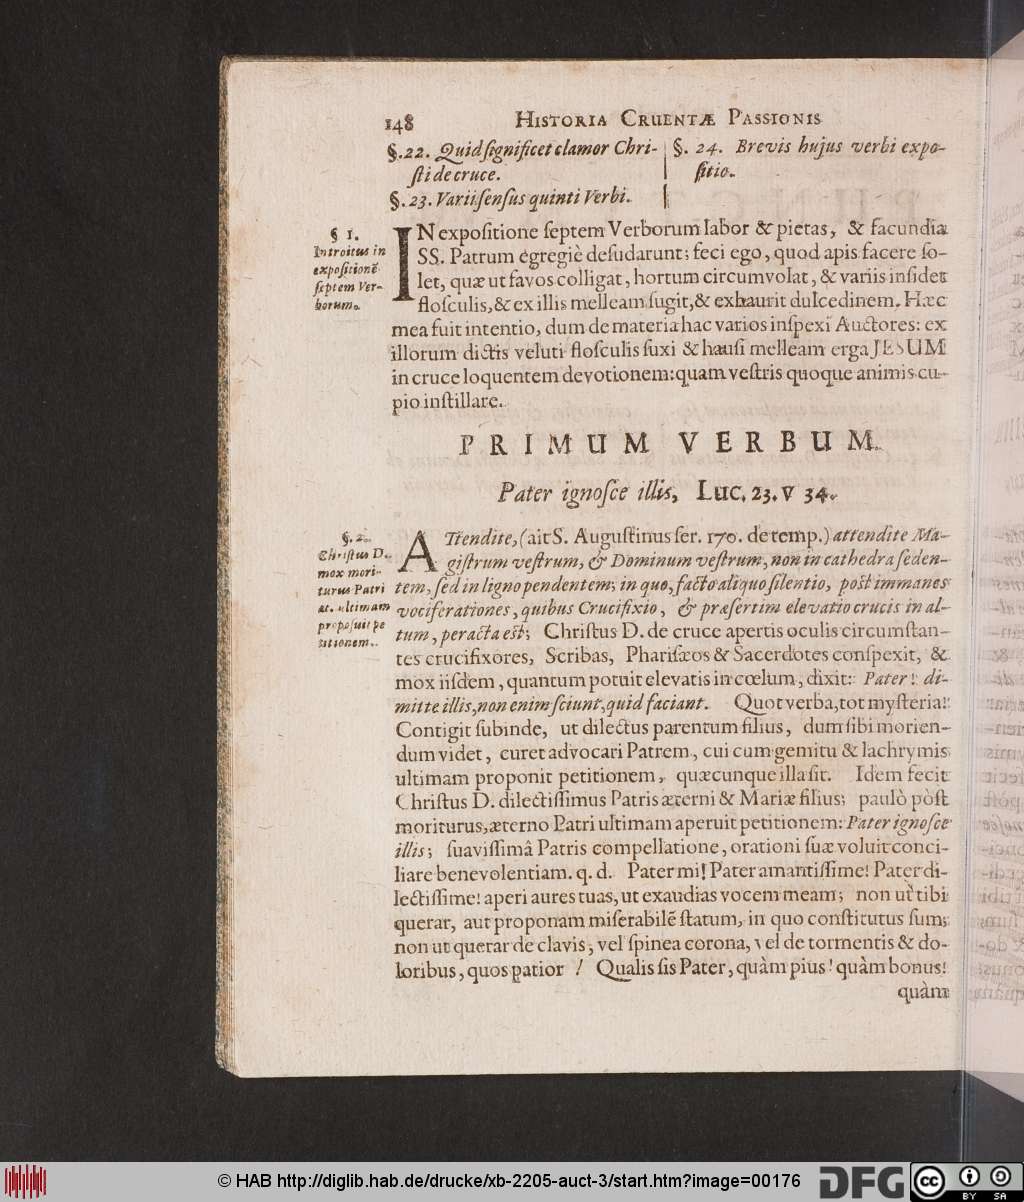 148 HISTORIA CRUENTÆ PASSIONIS
§.22. Quid ſignificet clamor Chri-
ſti de cruce.
§.23. Varii ſenſus quinti Verbi.
§. 24. Brevis hujus verbi expo-
ſitio.
§ 1.
Introitus in
expoſitionē
ſeptem Ver-
borum.
IN expoſitione ſeptem Verborum labor & pietas, & facundia
SS. Patrum egregiè deſudarunt; feci ego, quod apis facere ſo-
let, quæ ut favos colligat, hortum circumvolat, & variis inſidet
floſculis, & ex illis melleam ſugit, & exhaurit dulcedinem. Hæc
mea fuit intentio, dum de materia hac varios inſpexi Auctores: ex
illorum dictis veluti floſculis ſuxi & hauſi melleam erga JESUM
in cruce loquentem devotionem: quam veſtris quoque animis cu-
pio inſtillare.
PRIMUM VERBUM.
Pater ignoſce illis, Luc. 23. v 34.
§. 2.
Chriſtus D.
mox mori-
turus Patri
ultimam
propoſuit pe
titionem.
ATtendite, (ait S. Auguſtinus ſer. 170. de temp.) attendite Ma-
giſtrum veſtrum, & Dominum veſtrum, non in cathedra ſeden-
tem, ſed in ligno pendentem; in quo, facto aliquo ſilentio, poſt immanes
vociferationes, quibus Crucifixio, & præſertim elevatio crucis in al-
tum, peracta eſt; Chriſtus D. de cruce apertis oculis circumſtan-
tes crucifixores, Scribas, Phariſæos & Sacerdotes conſpexit, &
mox iiſdem, quantum potuit elevatis in cœlum, dixit: Pater! di-
mitte illis, non enim ſciunt, quid faciant. Quot verba, tot myſteria!
Contigit ſubinde, ut dilectus parentum filius, dum ſibi morien-
dum videt, curet advocari Patrem, cui cum gemitu & lachrymis
ultimam proponit petitionem, quæcunque illa ſit. Idem fecit
Chriſtus D. dilectiſſimus Patris æterni & Mariæ filius; paulò pòſt
moriturus, æterno Patri ultimam aperuit petitionem: Pater ignoſce
illis; ſuaviſſimâ Patris compellatione, orationi ſuæ voluit conci-
liare benevolentiam. q. d. Pater mi! Pater amantiſſime! Pater di-
lectiſſime! aperi aures tuas, ut exaudias vocem meam; non ut tibi
querar, aut proponam miſerabilē ſtatum, in quo conſtitutus ſum;
non ut querar de clavis, vel ſpinea corona, vel de tormentis & do-
loribus, quos patior! Qualis ſis Pater, quàm pius! quàm bonus!
quàm
© HAB http://diglib.hab.de/drucke/xb-2205-auct-3/start.htm?image=00176
DFG
cc
BY SA